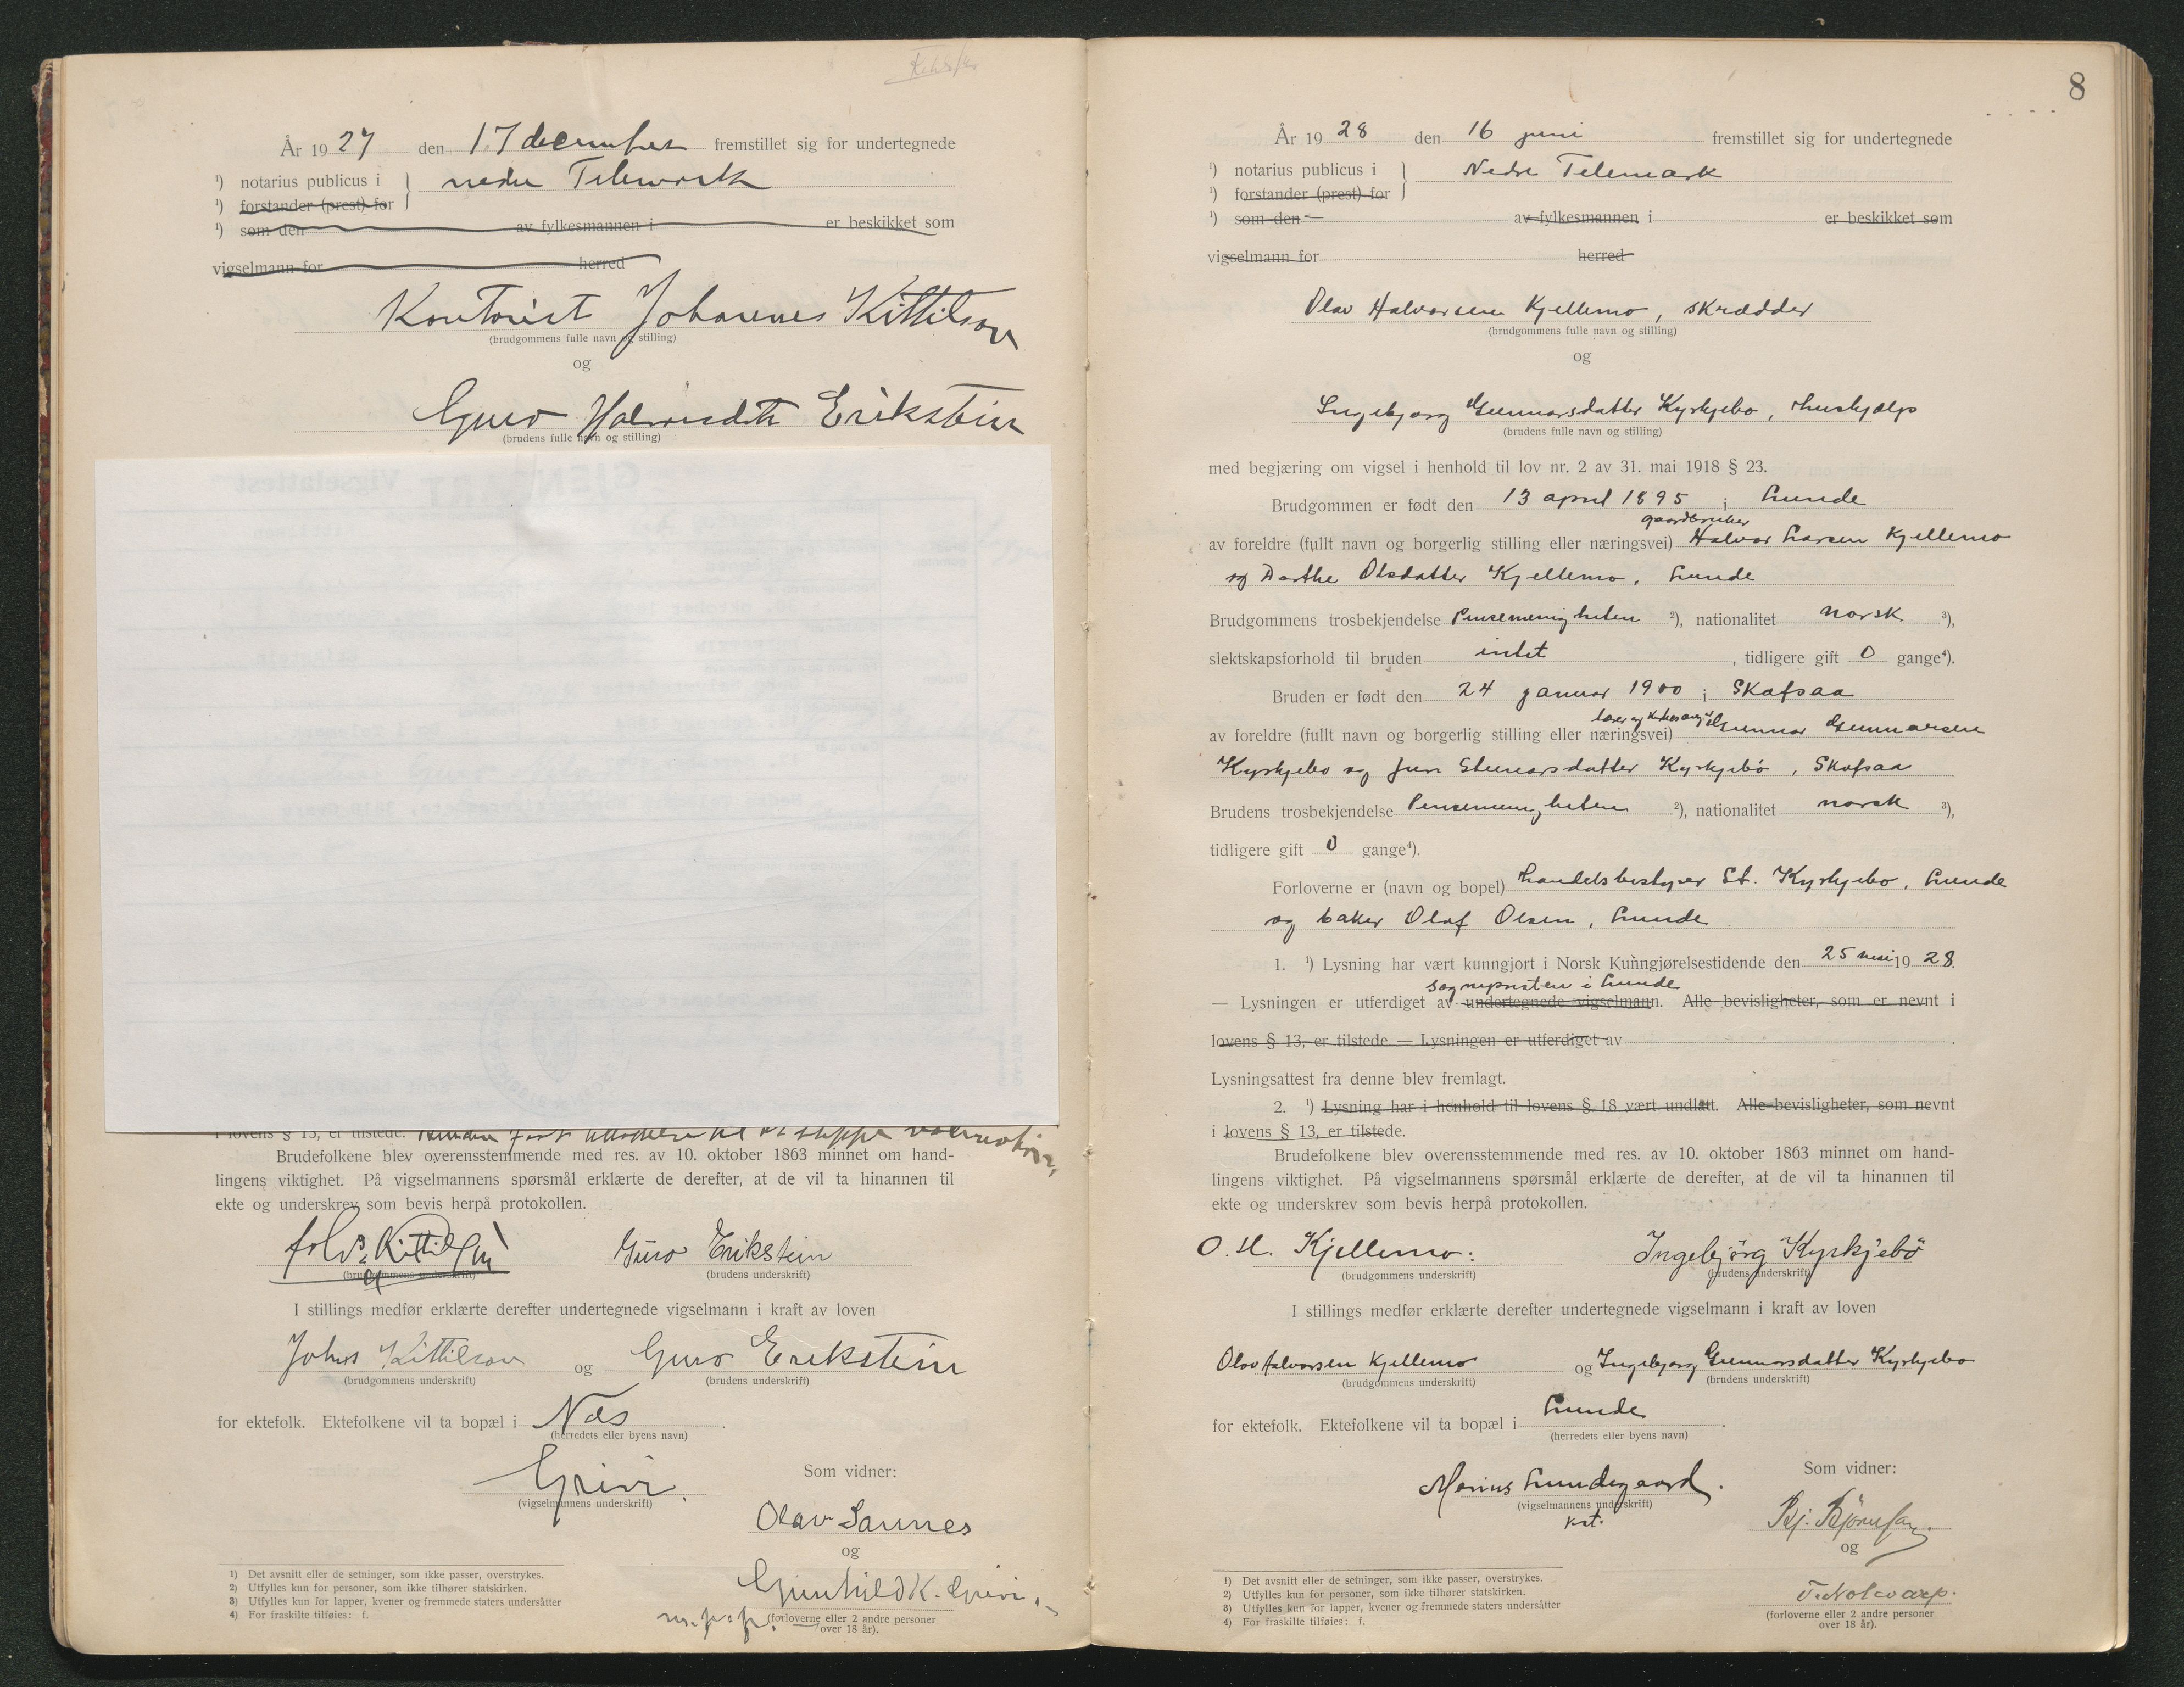 År 19 27 den 17 december fremstillet sig for undertegnede
¹) notarius publicus i nedre Telemark
¹) forstander (prest) for
¹) som den av fylkesmannen i er beskikket som
vigselmann for herred
Kontorist Johannes Kittilson
(brudgommens fulle navn og stilling)
og
Guro Halvorsdtr Erikstein
(brudens fulle navn og stilling)
GJENPART Vigselattest
i lovens § 13, er tilstede.
Brudefolkene blev overensstemmende med res. av 10. oktober 1863 minnet om hand-
lingens viktighet. På vigselmannens spørsmål erklærte de derefter, at de vil ta hinannen til
ekte og underskrev som bevis herpå protokollen.
Johs Kittilson Guro Erikstein
(brudgommens underskrift) (brudens underskrift)
I stillings medfør erklærte derefter undertegnede vigselmann i kraft av loven
Johs Kittilson og Guro Erikstein
(brudgommens underskrift) (brudens underskrift)
for ektefolk. Ektefolkene vil ta bopæl i Næs.
(herredets eller byens navn)
Grivi.
(vigselmannens underskrift)
Som vidner:
Olav Sannes
og
Gunhild K. Grivi
(forloverne eller 2 andre personer
over 18 år).
1) Det avsnitt eller de setninger, som ikke passer, overstrykes.
2) Utfylles kun for personer, som ikke tilhører statskirken.
3) Utfylles kun for lapper, kvener og fremmede staters undersåtter
4) For fraskilte tilføies: f.
8
År 19 28 den 16 juni fremstillet sig for undertegnede
¹) notarius publicus i Nedre Telemark
¹) forstander (prest) for
¹) som den av fylkesmannen i er beskikket som
vigselmann for herred
Olav Halvorsen Kjellemo, skrædder
(brudgommens fulle navn og stilling)
og
Ingebjørg Gunnarsdatter Kyrkjebø, hushjælp
(brudens fulle navn og stilling)
med begjæring om vigsel i henhold til lov nr. 2 av 31. mai 1918 § 23.
Brudgommen er født den 13 april 1895 i Lunde
gaardbruker
av foreldre (fullt navn og borgerlig stilling eller næringsvei) Halvor Larsen Kjellemo
og Dorthe Olsdatter Kjellemo, Lunde
Brudgommens trosbekjendelse Pinsemenigheten ²), nationalitet norsk ³),
slektskapsforhold til bruden intet, tidligere gift 0 gange⁴).
Bruden er født den 24 januar 1900 i Skafsaa
lærer og kirkesanger
av foreldre (fullt navn og borgerlig stilling eller næringsvei) Gunnar Gunnarsen
Kyrkjebø og Jun Steinarsdatter Kyrkjebø, Skafsaa
Brudens trosbekjendelse Pinsemenigheten ²), nationalitet norsk ³),
tidligere gift 0 gange⁴).
Forloverne er (navn og bopel) handelsbestyrer St. Kyrkjebø, Lunde
og baker Olaf Olsen, Lunde
1. ¹) Lysning har vært kunngjort i Norsk Kunngjørelsestidende den 25 mai 19 28.
sogneprsten i Lunde
— Lysningen er utferdiget av undertegnede vigselmann. Alle bevisligheter, som er nevnt i
lovens § 13, er tilstede. — Lysningen er utferdiget av
Lysningsattest fra denne blev fremlagt.
2. ¹) Lysning har i henhold til lovens § 18 vært undlatt. Alle bevisligheter, som nevnt
i lovens § 13, er tilstede.
Brudefolkene blev overensstemmende med res. av 10. oktober 1863 minnet om hand-
lingens viktighet. På vigselmannens spørsmål erklærte de derefter, at de vil ta hinannen til
ekte og underskrev som bevis herpå protokollen.
O. H. Kjellemo: Ingebjörg Kyrkjebö
(brudgommens underskrift) (brudens underskrift)
I stillings medfør erklærte derefter undertegnede vigselmann i kraft av loven
Olav Halvorsen Kjellemo og Ingebjørg Gunnarsdatter Kyrkjebø
(brudgommens underskrift) (brudens underskrift)
for ektefolk. Ektefolkene vil ta bopæl i Lunde.
(herredets eller byens navn)
Marius Lundegaard.
(vigselmannens underskrift)
kst.
Som vidner:
Bj. Björnsen
og
(forloverne eller 2 andre personer
over 18 år).
1) Det avsnitt eller de setninger, som ikke passer, overstrykes.
2) Utfylles kun for personer, som ikke tilhører statskirken.
3) Utfylles kun for lapper, kvener og fremmede staters undersåtter
4) For fraskilte tilføies: f.